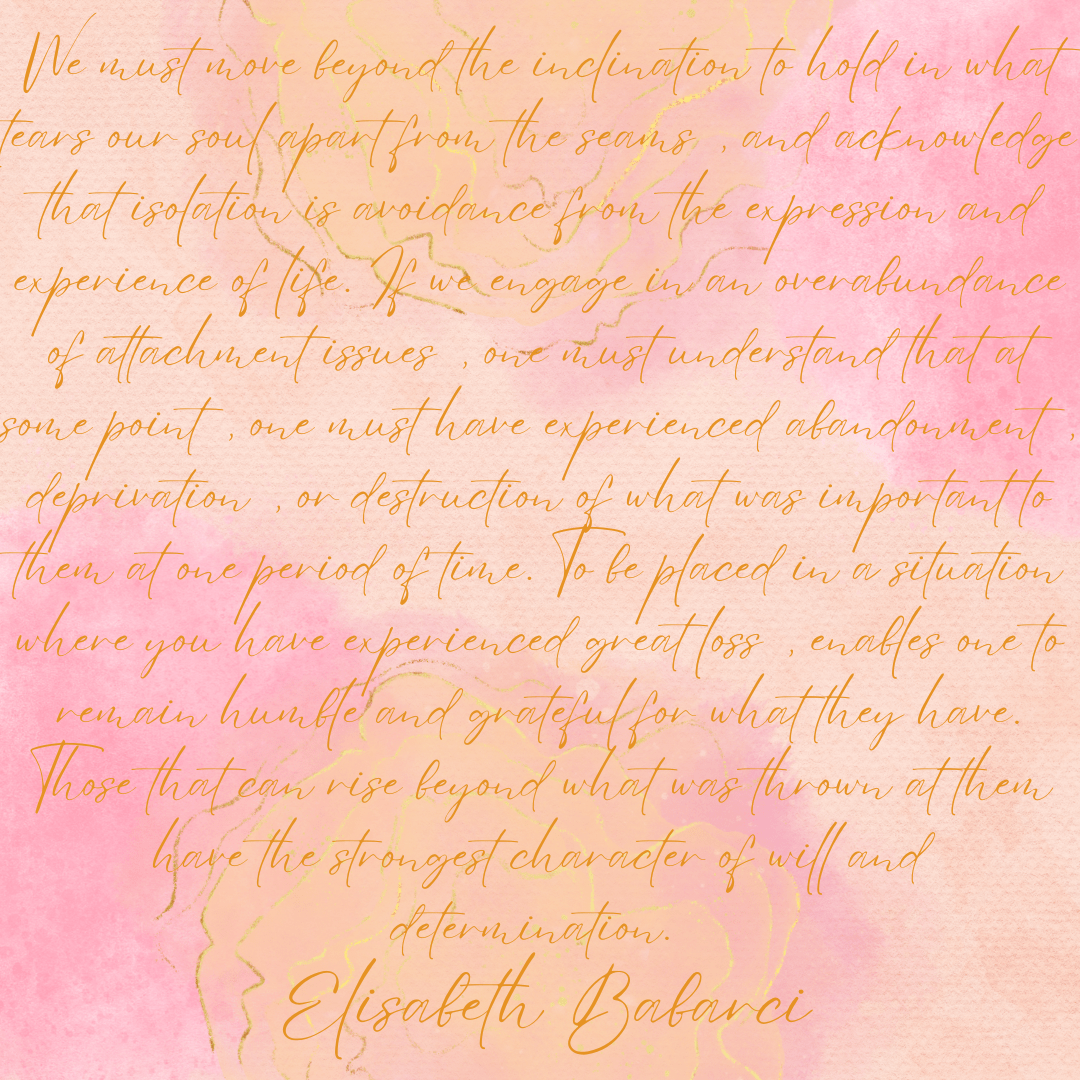 We must move beyond the inclination to hold in what
tears our soul apart from the seams , and acknowledge
that isolation is avoidance from the expression and
experience of life. If we engage in an overabundance
of attachment issues , one must understand that at
some point , one must have experienced abandonment ,
deprivation , or destruction of what was important to
them at one period of time. To be placed in a situation
where you have experienced great loss , enables one to
remain humble and grateful for what they have.
Those that can rise beyond what was thrown at them
have the strongest character of will and
determination.
Elisabeth Babarci